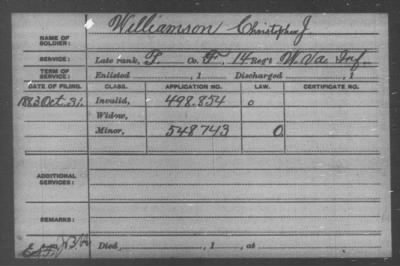 NAME OF SOLDIER: Williamson Christopher J
SERVICE: Late rank, P. Co. F 14 Reg't W. Va. Inf
TERM OF SERVICE: Enlisted , 1 Discharged , 1
DATE OF FILING. CLASS. APPLICATION NO. LAW. CERTIFICATE NO.
1883 Oct. 31. Invalid, 498.854 o
Widow,
Minor, 548743 O
ADDITIONAL SERVICES:
REMARKS:
Died , 1 , at